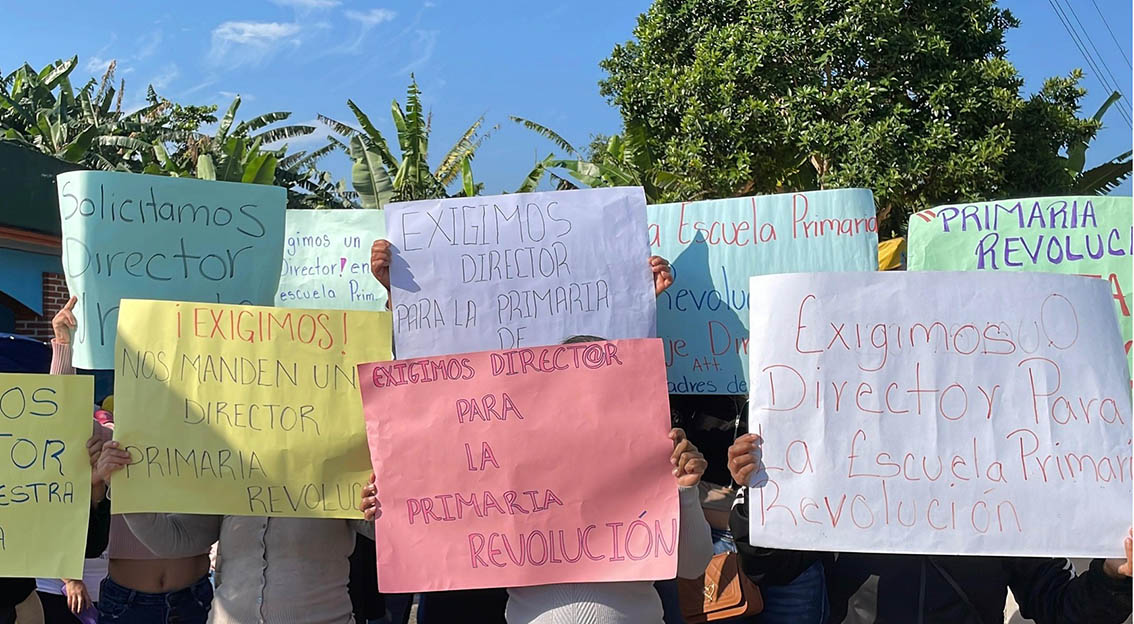 Solicitamos
Director
Ur
gimos un
Director! en
escuela Prim
EXIGIMOS
DIRECTOR
PARA LA PRIMARIA
DE
a Escuela Primaria
Revolu
e Dir
Att.
adres de
"PRIMARIA
REVOLUC
OS
TOR
ESTRA
A
¡EXIGIMOS!
NOS MANDEN UN
DIRECTOR
PRIMARIA
REVOLUC
EXIGIMOS DIRECT@R
PARA
LA
PRIMARIA
REVOLUCIÓN
Exigimos UO
Director Para
La Escuela Primari
Revolución